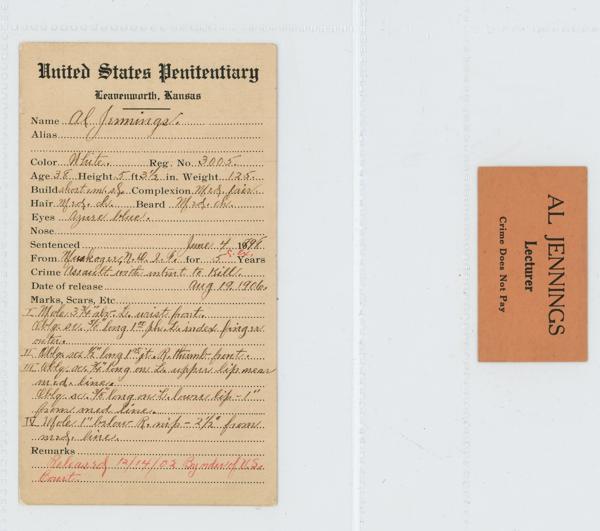 United States Penitentiary
Leavenworth, Kansas
Name Al Jennings.
Alias
Color White. Reg. No. 3005.
Age 38 Height 5 ft 3½ in. Weight 125.
Build short m. sl. Complexion Med. fair.
Hair Med. ch. Beard Med. ch.
Eyes Azure blue.
Nose
Sentenced June 4 1898
From Muskogee, N.D. I.T. for 5 Years
Crime Assault with intent to Kill.
Date of release Aug 19. 1906.
Marks, Scars, Etc.
I Mole 3¾" abv. L. wrist front.
Oblq. sc. long 1st ph. L. index finger
outer.
II Oblq. sc. ½" long 1st jt. R. thumb front.
III Oblq. sc. long on L. upper lip near
med. line.
Oblq. sc. long on L. lower lip - 1"
from med line.
IV Mole 1" below R. nip - 2½" from
med. line.
Remarks
Released 12/14/02 By order of U.S.
Court.
AL JENNINGS
Lecturer
Crime Does Not Pay